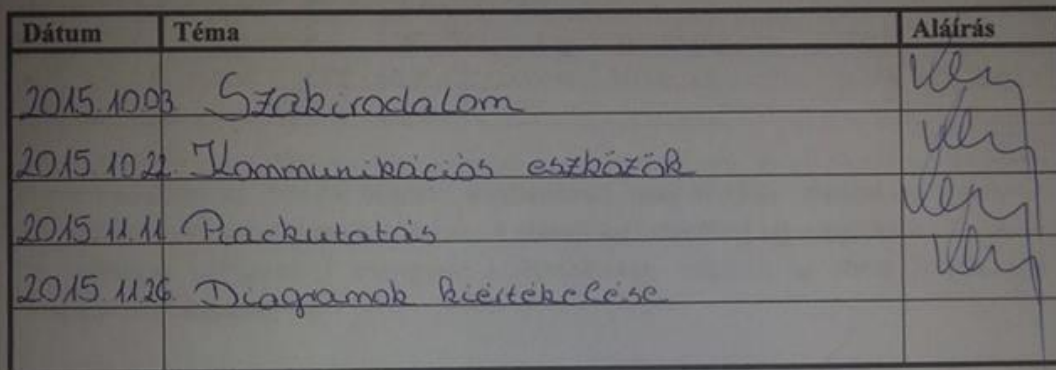 Dátum Téma Aláírás
2015.10.03. Szakirodalom
2015.10.22. Kommunikációs eszközök
2015.11.11. Piackutatás
2015.11.26. Diagramok kiértékelése